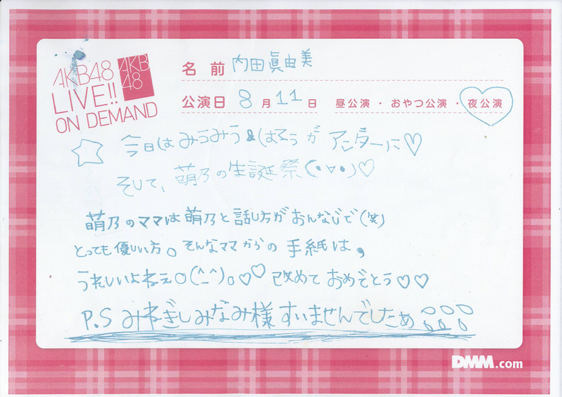 AKB48
LIVE!!
ON DEMAND
AKB
48
名前 内田眞由美
公演日 8月11日 昼公演・おやつ公演・夜公演
今日はみうみう&はろうがアンダーに♡
そして、萌乃の生誕祭(・∀・)♡
萌乃のママは萌乃と話し方がおんなじで(笑)
とっても優しい方。そんなママからの手紙は、
うれしいよねぇ○(^_^)。♡♡ 改めておめでとう♡♡
P.S みねぎしみなみ様すいませんでしたぁ
DMM.com